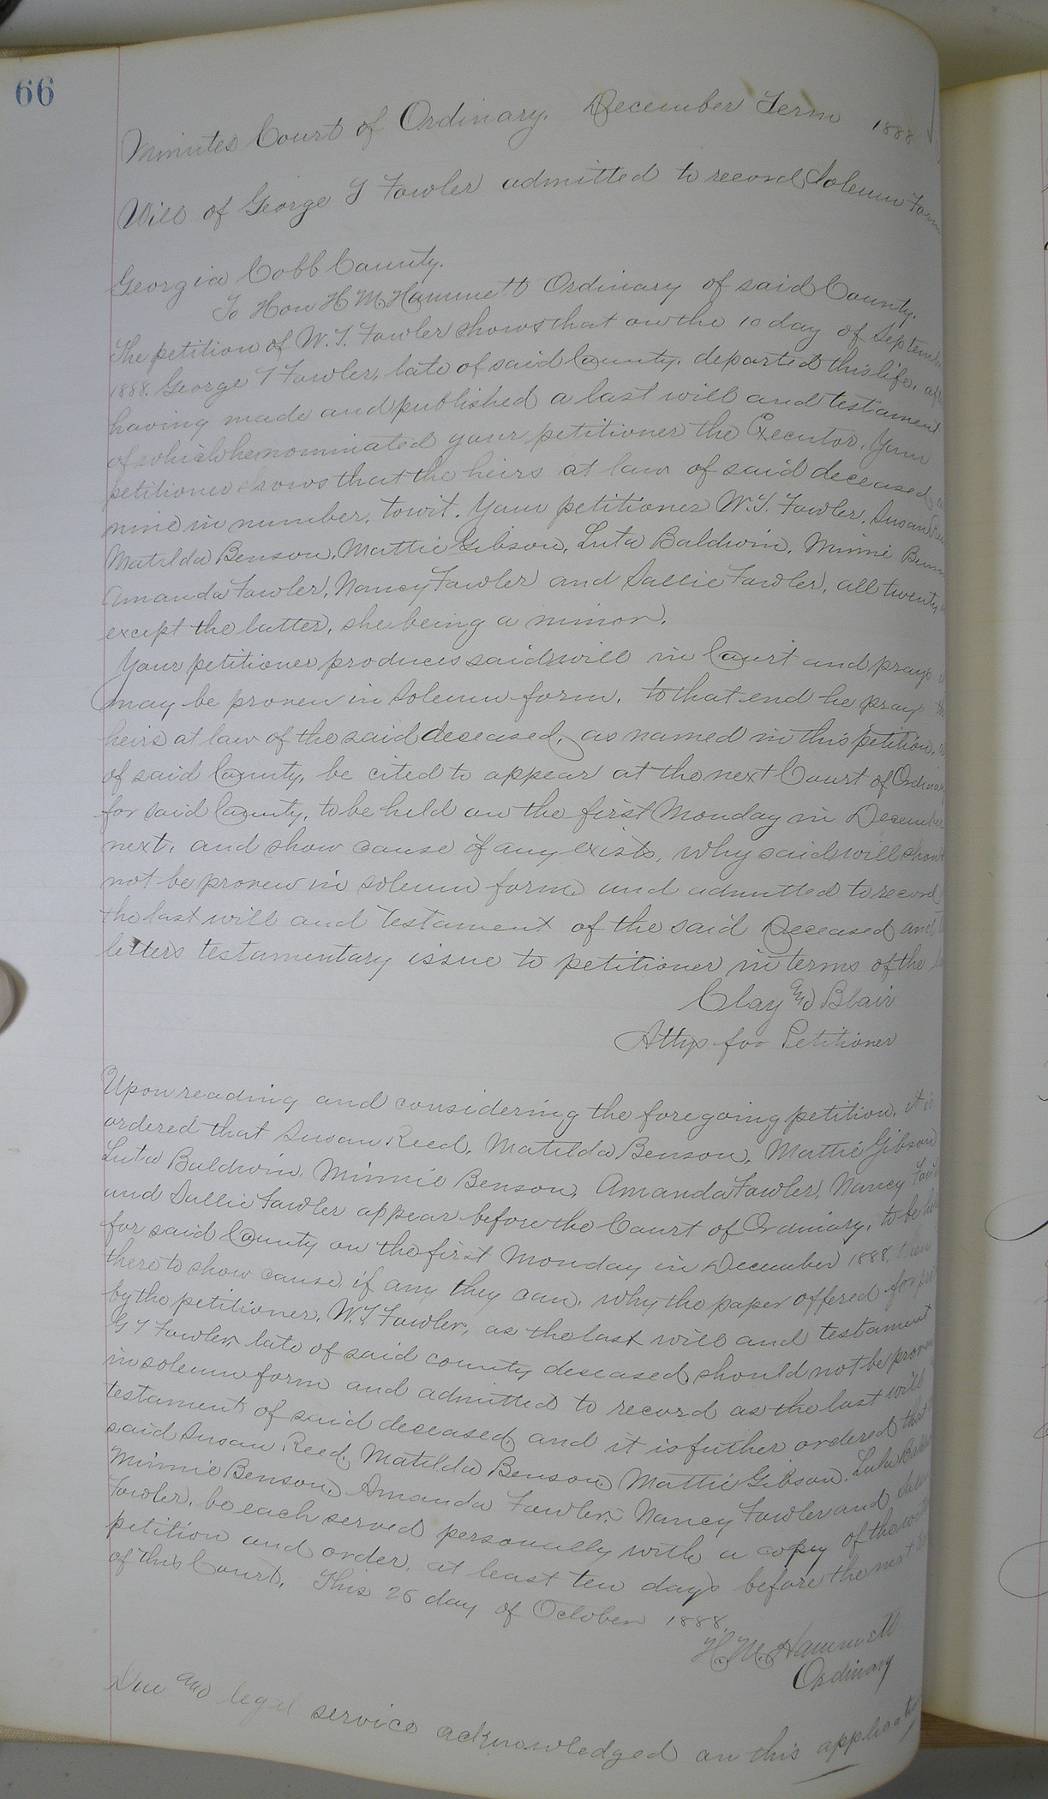 66
Minutes Court of Ordinary. December Term 1888
Will of George T Fowler admitted to record Solemn Form
Georgia Cobb County.
To Hon H. M. Hammett Ordinary of said County.
The petition of W. T. Fowler shows that on the 10 day of Septem
1888. George T Fowler, late of said County. departed this life, after
having made and published a last will and testament
of which he nominated your petitioner the Executor. Your
petitioner shows that the heirs at law of said deceased,
nine in number, towit. Your petitioner W. T. Fowler, Susan Reed
Matilda Benson, Mattie Gibson, Luta Baldwin, Minnie Benson
Amanda Fowler, Nancy Fowler and Sallie Fowler, all twenty
except the latter, she being a minor.
Your petitioner produces said will in Court and prays
may be proven in solemn form, to that end he prays the
heirs at law of the said deceased, as named in this petition,
of said County, be cited to appear at the next Court of Ordinary
for said County, to be held on the first Monday in December
next, and show cause if any exists, why said will should
not be proven in solemn form and admitted to record
the last will and testament of the said Deceased and
letters testamentary issue to petitioner in terms of the
Clay and Blair
Attys for Petitioner
Upon reading and considering the foregoing petition, it is
ordered that Susan Reed, Matilda Benson, Mattie Gibson
Luta Baldwin, Minnie Benson, Amanda Fowler, Nancy Fowl
and Sallie Fowler appear before the Court of Ordinary, to be held
for said County on the first Monday in December 1888, then
there to show cause if any they can, why the paper offered for pro
by the petitioner, W. T. Fowler, as the last will and testament
G T Fowler, late of said county deceased, should not be proven
in solemn form and admitted to record as the last will
testament of said deceased, and it is futher ordered that
said Susan Reed, Matilda Benson, Mattie Gibson, Luta Bald
Minnie Benson, Amanda Fowler, Nancy Fowler and Sallie
Fowler, be each served personally with a copy of the
petition and order, at least ten days before the next
of this Court. This 26 day of October 1888.
H. M. Hammett
Ordinary
Due and legal service acknowledged on this application